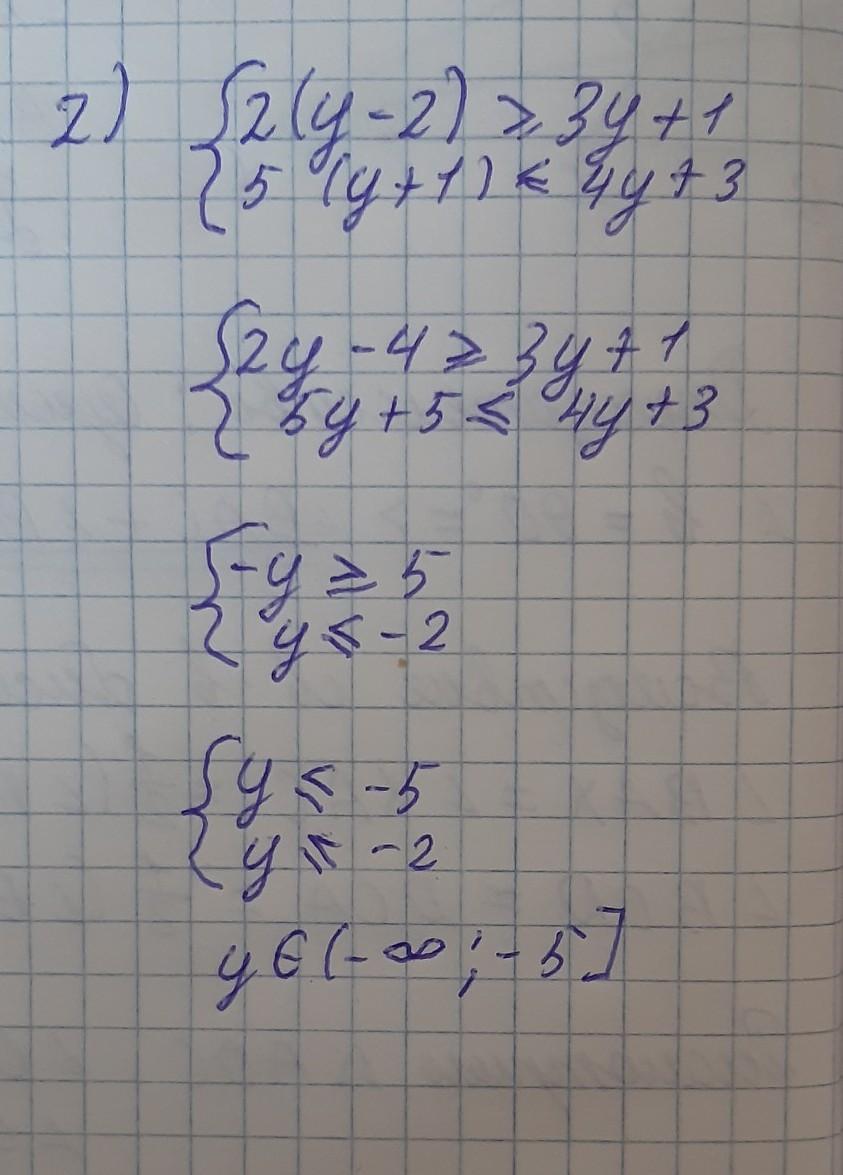 2) { 2(y-2) ⩾ 3y+1
5 (y+1) ⩽ 4y+3
{ 2y-4 ⩾ 3y+1
5y+5 ⩽ 4y+3
{ -y ⩾ 5
y ⩽ -2
{ y ⩽ -5
y ⩽ -2
y ∈ (-∞; -5]